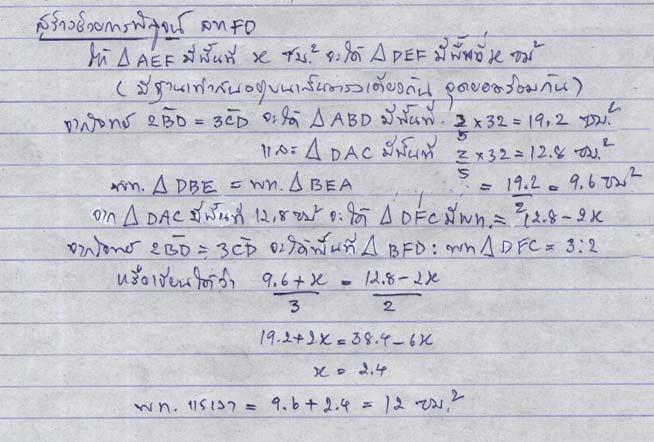 สร้างด้วยการพิสูจน์ ลาก FD
ให้ △ AEF มีพื้นที่ x ซม.² จะได้ △ DEF มีพื้นที่ x ซม²
(มีฐานเท่ากันอยู่บนเส้นตรงเดียวกัน จุดยอดร่วมกัน)
จากโจทย์ 2BD = 3CD จะได้ △ ABD มีพื้นที่ 3/5 × 32 = 19.2 ซม.²
และ △ DAC มีพื้นที่ 2/5 × 32 = 12.8 ซม.²
พท. △ DBE = พท. △ BEA = 19.2/2 = 9.6 ซม²
จาก △ DAC มีพื้นที่ 12.8 ซม² จะได้ △ DFC มีพท. = 12.8 - 2x
จากโจทย์ 2BD = 3CD จะได้พื้นที่ △ BFD : พท △ DFC = 3:2
หรือเขียนได้ว่า 9.6 + x / 3 = 12.8 - 2x / 2
19.2 + 2x = 38.4 - 6x
x = 2.4
พท. แรเงา = 9.6 + 2.4 = 12 ซม.²